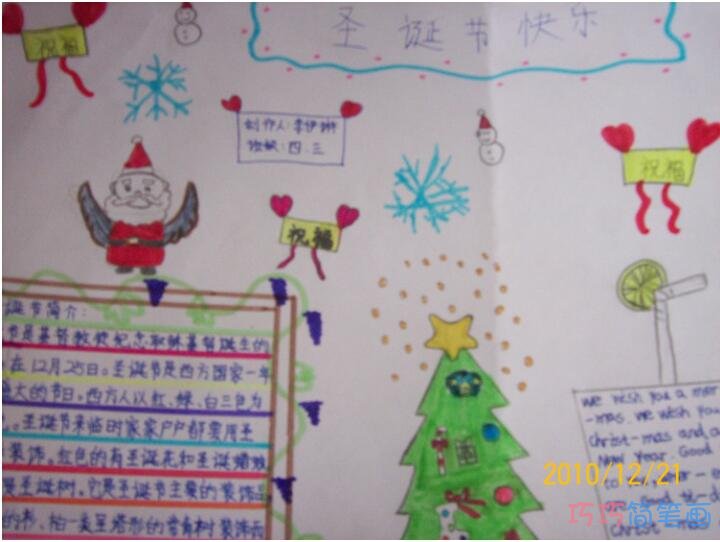 圣诞节快乐
祝福
创作人:李伊
班级:四.三
祝福
祝福
诞节简介:
节是基督教徒纪念耶稣基督诞生的
在12月25日。圣诞节是西方国家一年
盛大的节日。西方人以红、绿、白三色为
。圣诞节来临时家家户户都要用圣
装饰。红色的有圣诞花和圣诞蜡烛
是圣诞树。它是圣诞节主要的装饰品
的杉、柏一类呈塔形的常青树装饰而
we wish you a mer
-mas. we wish you
christ-mas and a
New Year. Good
Good ti-d
christ-mas
2010/12/21
巧巧简笔画